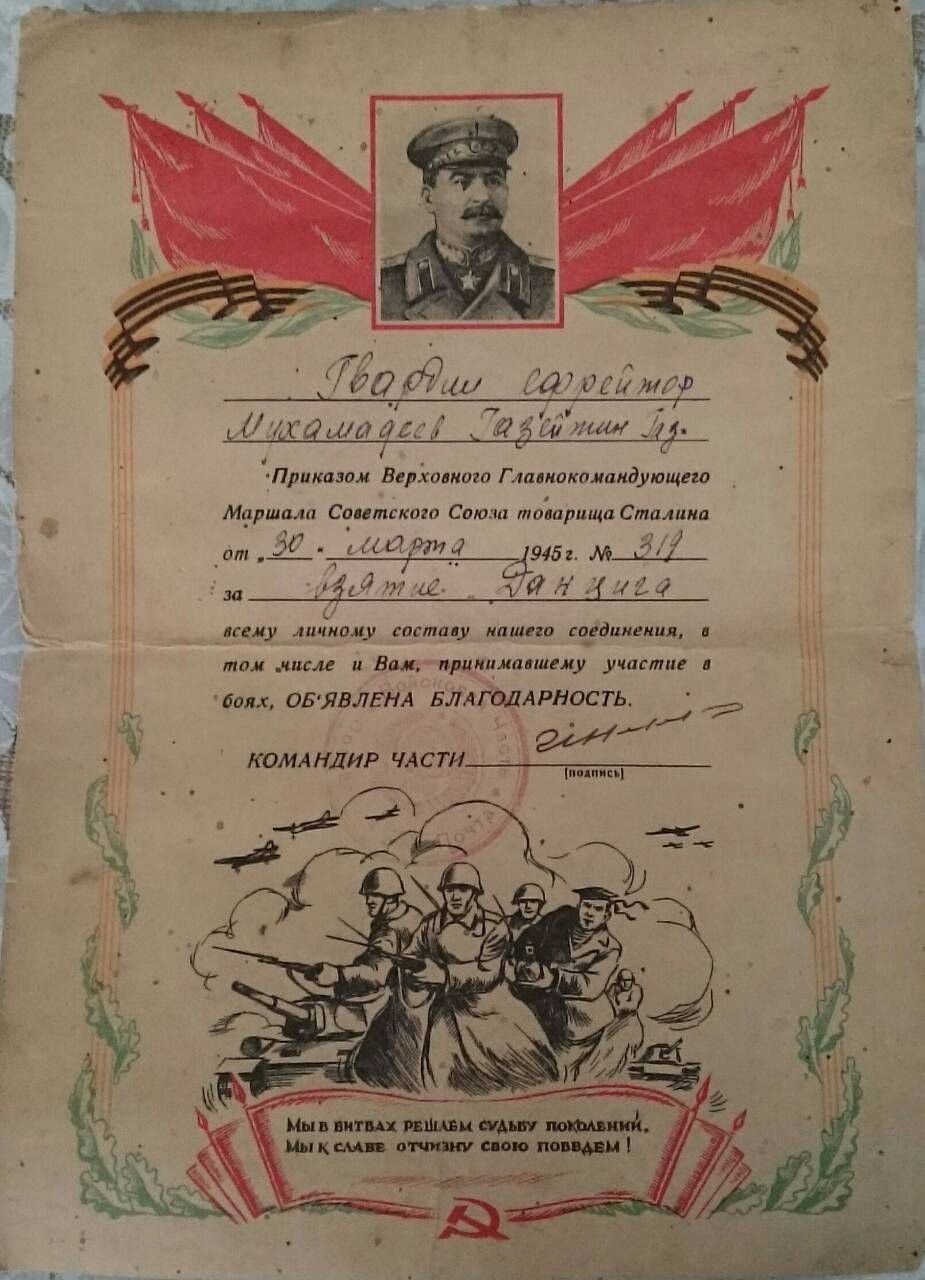 Гвардии ефрейтор
Мухамадеев Газейтин Газ.
Приказом Верховного Главнокомандующего
Маршала Советского Союза товарища Сталина
от „30" марта 1945 г. № 319
за взятие Данцига
всему личному составу нашего соединения, в
том числе и Вам, принимавшему участие в
боях, ОБ'ЯВЛЕНА БЛАГОДАРНОСТЬ.
КОМАНДИР ЧАСТИ
(подпись)
Войсковая Часть
Почта
Мы в битвах решаем судьбу поколений,
Мы к славе отчизну свою поведем!